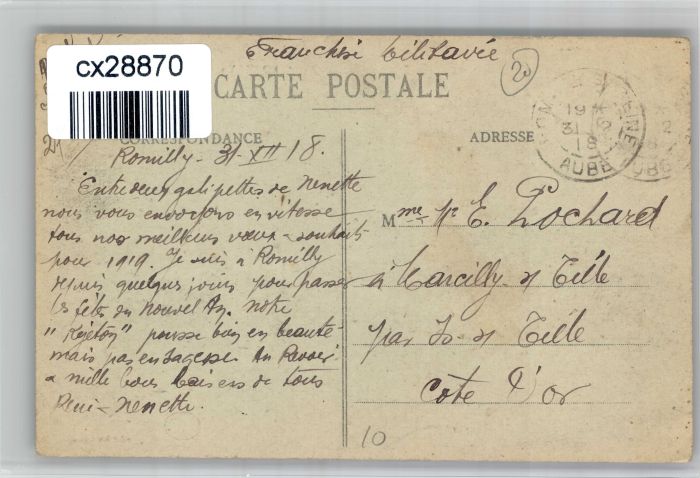 cx28870
Franchise Militaire
20
CARTE POSTALE
CORRESPONDANCE
ADRESSE
19
31
18
AUBE
Romilly - 31 - XII 18.
Entre deux galipettes de Nenette
nous vous envoyons en vitesse
tous nos meilleurs vœux - souhaits
pour 1919. Je suis à Romilly
depuis quelques jours pour passer
les fêtes du Nouvel An. Notre
"Rejeton" pousse bien en beauté
mais pas en sagesse. Au Revoir
mille bons baisers de tous
René - Nenette.
Mme Mr E. Pochard
à Marcilly s/ Tille
par Is s/ Tille
Cote d'or
10